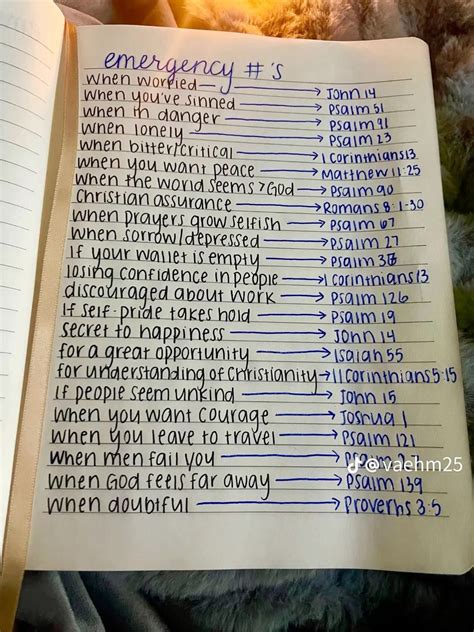 emergency #'s
when worried → John 14
when you've sinned → Psalm 51
when in danger → Psalm 91
when lonely → Psalm 23
when bitter/critical → 1 Corinthians 13
when you want peace → Matthew 11:25
when the world seems > God → Psalm 90
Christian assurance → Romans 8:1-30
when prayers grow selfish → Psalm 67
when sorrow/depressed → Psalm 27
If your wallet is empty → Psalm
losing confidence in people → 1 Corinthians 13
discouraged about work → Psalm 126
If self-pride takes hold → Psalm 19
secret to happiness → John 14
for a great opportunity → Isaiah 55
for understanding of Christianity → 11 Corinthians 5:15
If people seem unkind → John 15
when you want courage → Joshua 1
when you leave to travel → Psalm 121
when men fail you → Psalm
@vaehm25
when God feels far away → Psalm 139
when doubtful → Proverbs 3:5